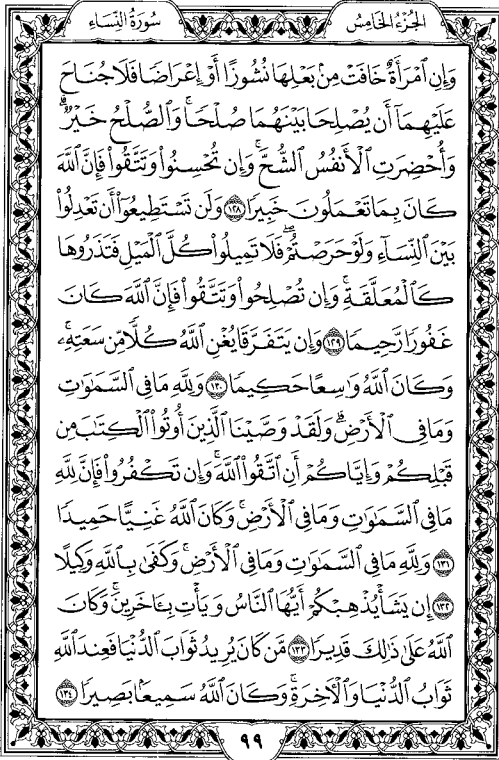 الجزء الخامس سورة النساء
وَإِنِ ٱمۡرَأَةٌ خَافَتۡ مِنۢ بَعۡلِهَا نُشُوزًا أَوۡ إِعۡرَاضٗا فَلَا جُنَاحَ
عَلَيۡهِمَآ أَن يُصۡلِحَا بَيۡنَهُمَا صُلۡحٗاۚ وَٱلصُّلۡحُ خَيۡرٞۗ
وَأُحۡضِرَتِ ٱلۡأَنفُسُ ٱلشُّحَّۚ وَإِن تُحۡسِنُواْ وَتَتَّقُواْ فَإِنَّ ٱللَّهَ
كَانَ بِمَا تَعۡمَلُونَ خَبِيرٗا ١٢٨ وَلَن تَسۡتَطِيعُوٓاْ أَن تَعۡدِلُواْ
بَيۡنَ ٱلنِّسَآءِ وَلَوۡ حَرَصۡتُمۡۖ فَلَا تَمِيلُواْ كُلَّ ٱلۡمَيۡلِ فَتَذَرُوهَا
كَٱلۡمُعَلَّقَةِۚ وَإِن تُصۡلِحُواْ وَتَتَّقُواْ فَإِنَّ ٱللَّهَ كَانَ
غَفُورٗا رَّحِيمٗا ١٢٩ وَإِن يَتَفَرَّقَا يُغۡنِ ٱللَّهُ كُلّٗا مِّن سَعَتِهِۦۚ
وَكَانَ ٱللَّهُ وَٰسِعًا حَكِيمٗا ١٣٠ وَلِلَّهِ مَا فِي ٱلسَّمَٰوَٰتِ
وَمَا فِي ٱلۡأَرۡضِۗ وَلَقَدۡ وَصَّيۡنَا ٱلَّذِينَ أُوتُواْ ٱلۡكِتَٰبَ مِن
قَبۡلِكُمۡ وَإِيَّاكُمۡ أَنِ ٱتَّقُواْ ٱللَّهَۚ وَإِن تَكۡفُرُواْ فَإِنَّ لِلَّهِ
مَا فِي ٱلسَّمَٰوَٰتِ وَمَا فِي ٱلۡأَرۡضِۚ وَكَانَ ٱللَّهُ غَنِيًّا حَمِيدٗا
١٣١ وَلِلَّهِ مَا فِي ٱلسَّمَٰوَٰتِ وَمَا فِي ٱلۡأَرۡضِۚ وَكَفَىٰ بِٱللَّهِ وَكِيلًا
١٣٢ إِن يَشَأۡ يُذۡهِبۡكُمۡ أَيُّهَا ٱلنَّاسُ وَيَأۡتِ بِـَٔاخَرِينَۚ وَكَانَ
ٱللَّهُ عَلَىٰ ذَٰلِكَ قَدِيرٗا ١٣٣ مَّن كَانَ يُرِيدُ ثَوَابَ ٱلدُّنۡيَا فَعِندَ ٱللَّهِ
ثَوَابُ ٱلدُّنۡيَا وَٱلۡأٓخِرَةِۚ وَكَانَ ٱللَّهُ سَمِيعَۢا بَصِيرٗا ١٣٤
٩٩